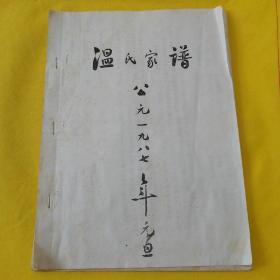 温氏家谱
公元一九八七年元旦